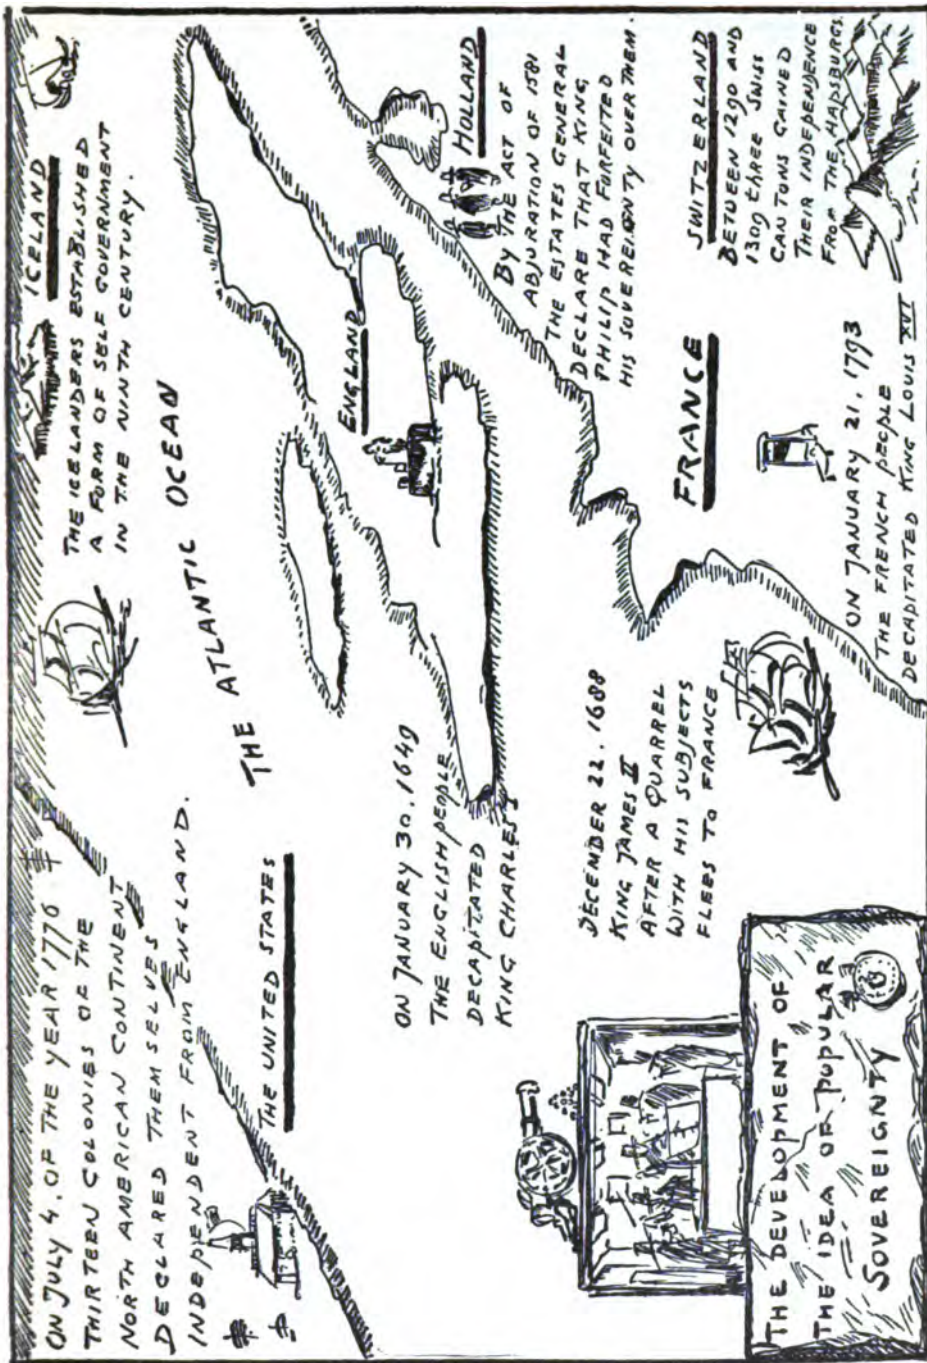 ON JULY 4. OF THE YEAR 1776
THIRTEEN COLONIES OF THE
NORTH AMERICAN CONTINENT
DECLARED THEMSELVES
INDEPENDENT FROM ENGLAND.
THE UNITED STATES
ICELAND
THE ICELANDERS ESTABLISHED
A FORM OF SELF GOVERNMENT
IN THE NINTH CENTURY.
THE ATLANTIC OCEAN
ENGLAND
ON JANUARY 30. 1649
THE ENGLISH PEOPLE
DECAPITATED
KING CHARLES I
HOLLAND
BY THE ACT OF
ABJURATION OF 1581
THE ESTATES GENERAL
DECLARE THAT KING
PHILIP HAD FORFEITED
HIS SOVEREIGNTY OVER THEM.
DECEMBER 22. 1688
KING JAMES II
AFTER A QUARREL
WITH HIS SUBJECTS
FLEES TO FRANCE
FRANCE
ON JANUARY 21, 1793
THE FRENCH PEOPLE
DECAPITATED KING LOUIS XVI
SWITZERLAND
BETWEEN 1290 AND
1309 THREE SWISS
CANTONS GAINED
THEIR INDEPENDENCE
FROM THE HAPSBURGS.
THE DEVELOPMENT OF
THE IDEA OF POPULAR
SOVEREIGNTY